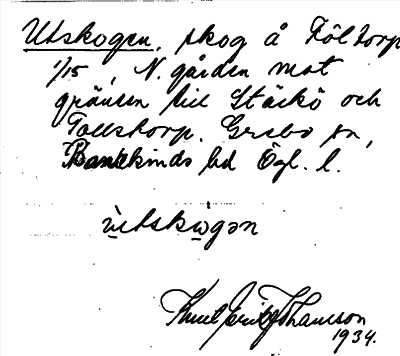 Utskogen, skog å Föltorp
1/15, N. gården mot
gränsen till Stäckö och
Tollstorp. Grebo sn,
Bankekinds hd Ögl. l.
ùtskωgən
Knut Erik Johansson
1934.